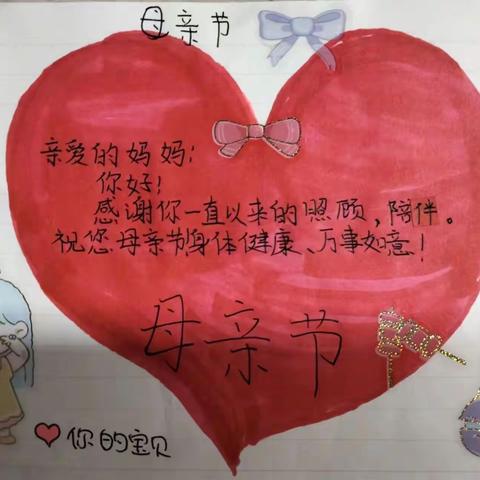 母亲节
亲爱的妈妈：
你好！
感谢你一直以来的照顾，陪伴。
祝您母亲节身体健康、万事如意！
母亲节
你的宝贝